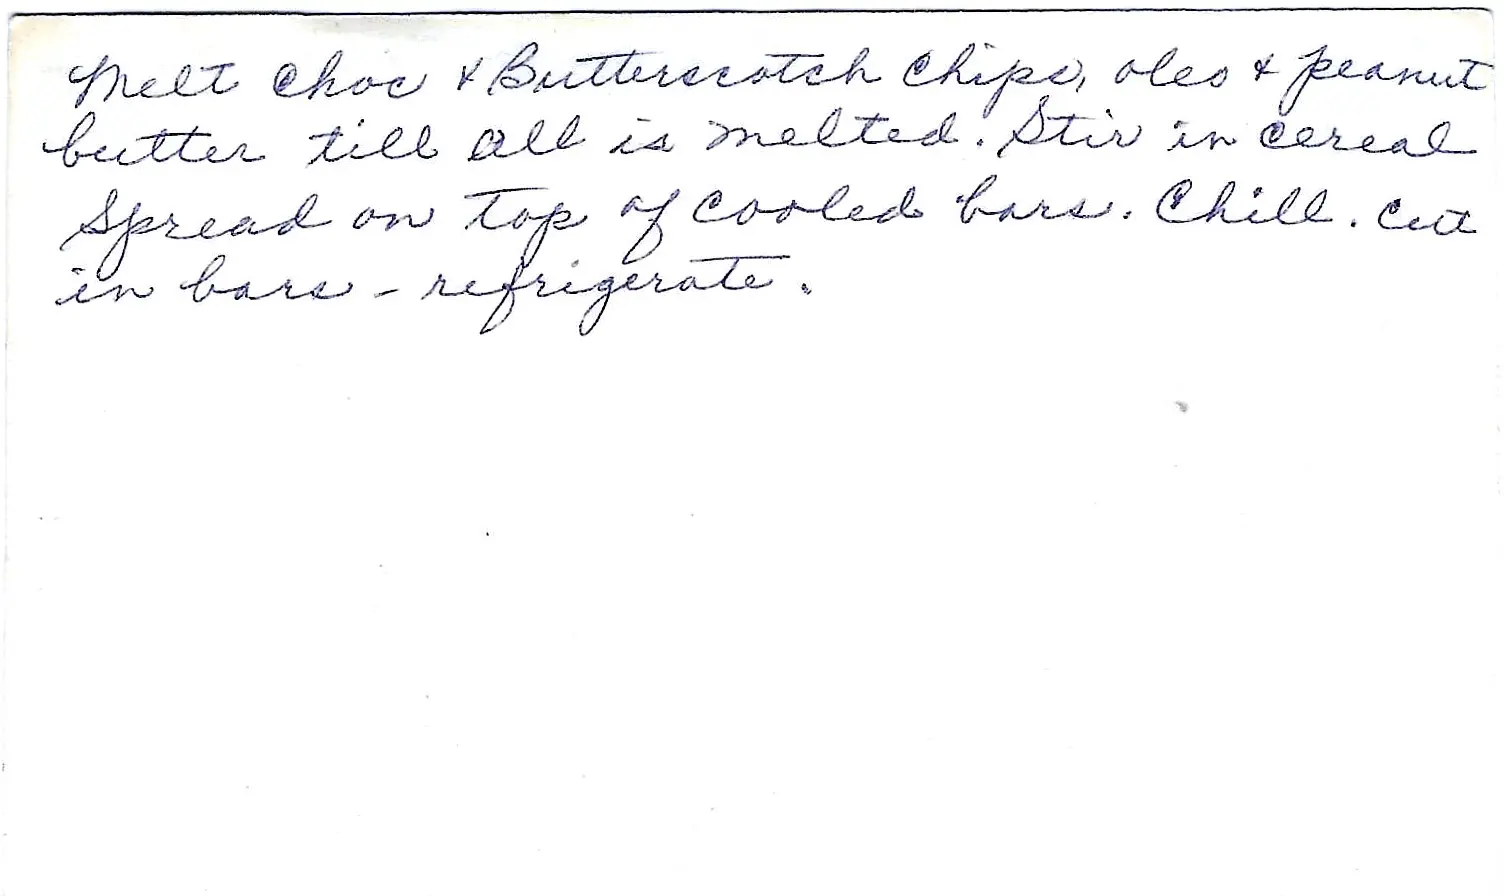 Melt Choc & Butterscotch Chips, oleo & peanut
butter till all is melted. Stir in cereal
Spread on top of cooled bars. Chill. Cut
in bars - refrigerate.